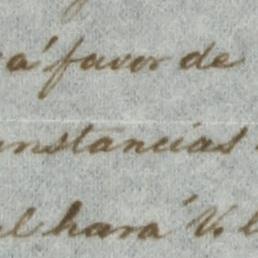 a favor de
unstancias
al hará V.